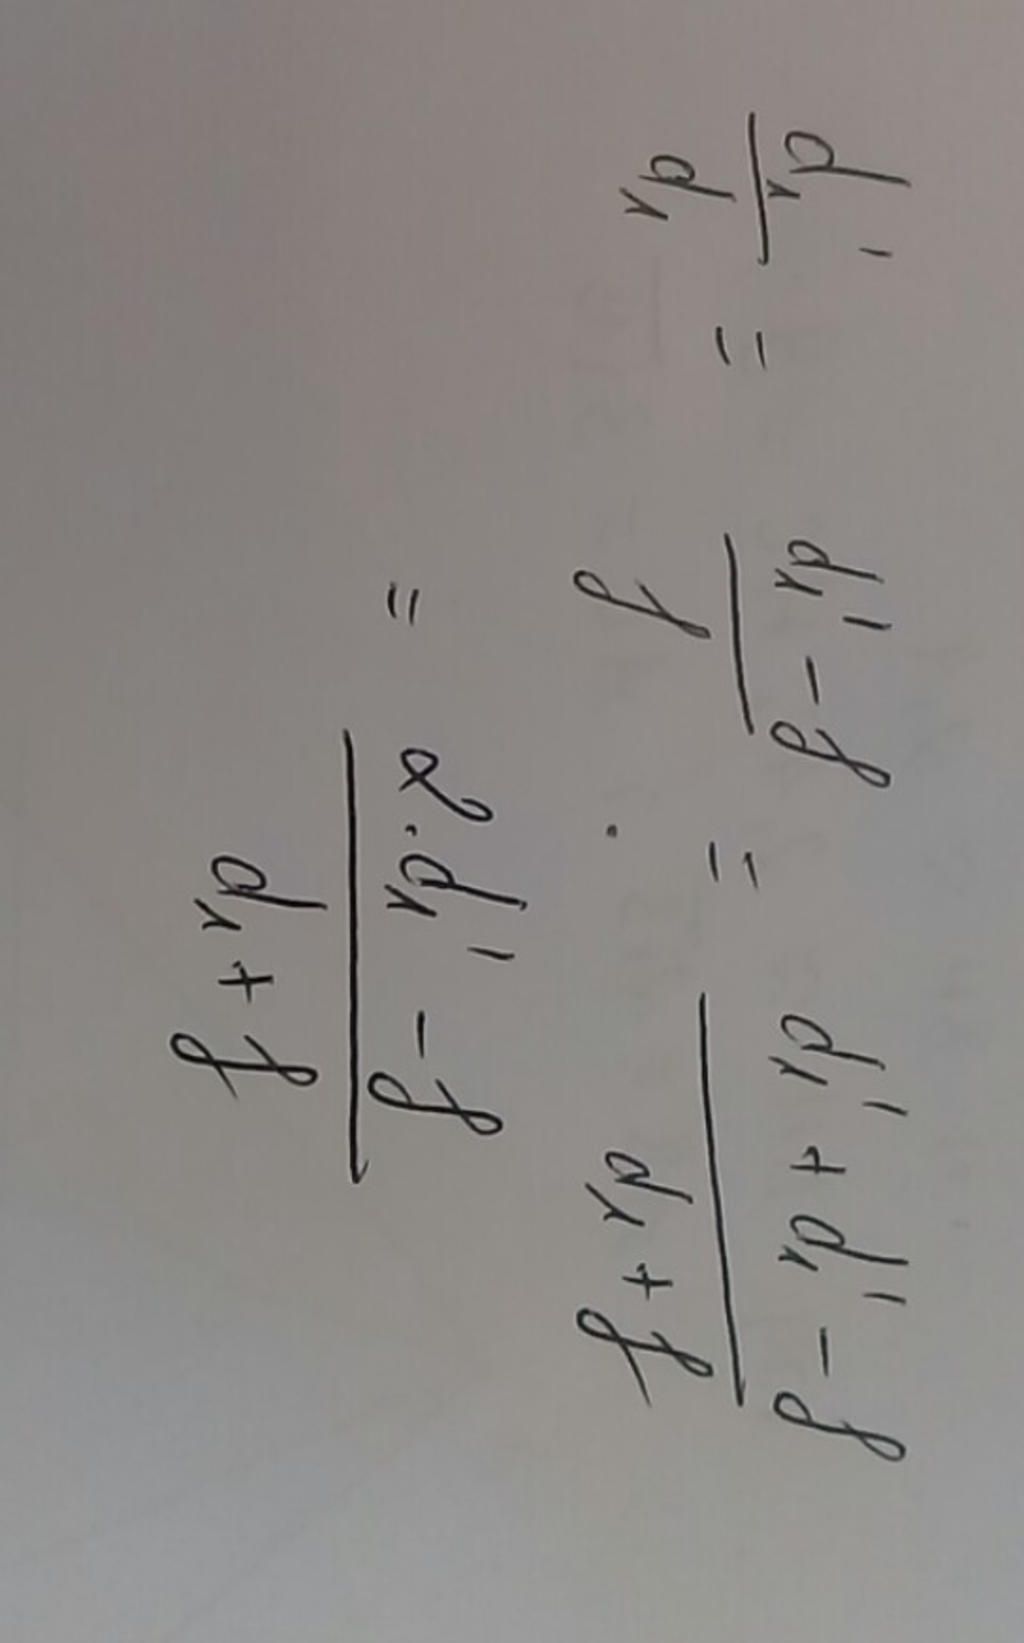 d₁'/d₁ = (d₁' - f)/f = (d₁' + d₁' - f)/(d₁ + f)
= (2·d₁' - f)/(d₁ + f)